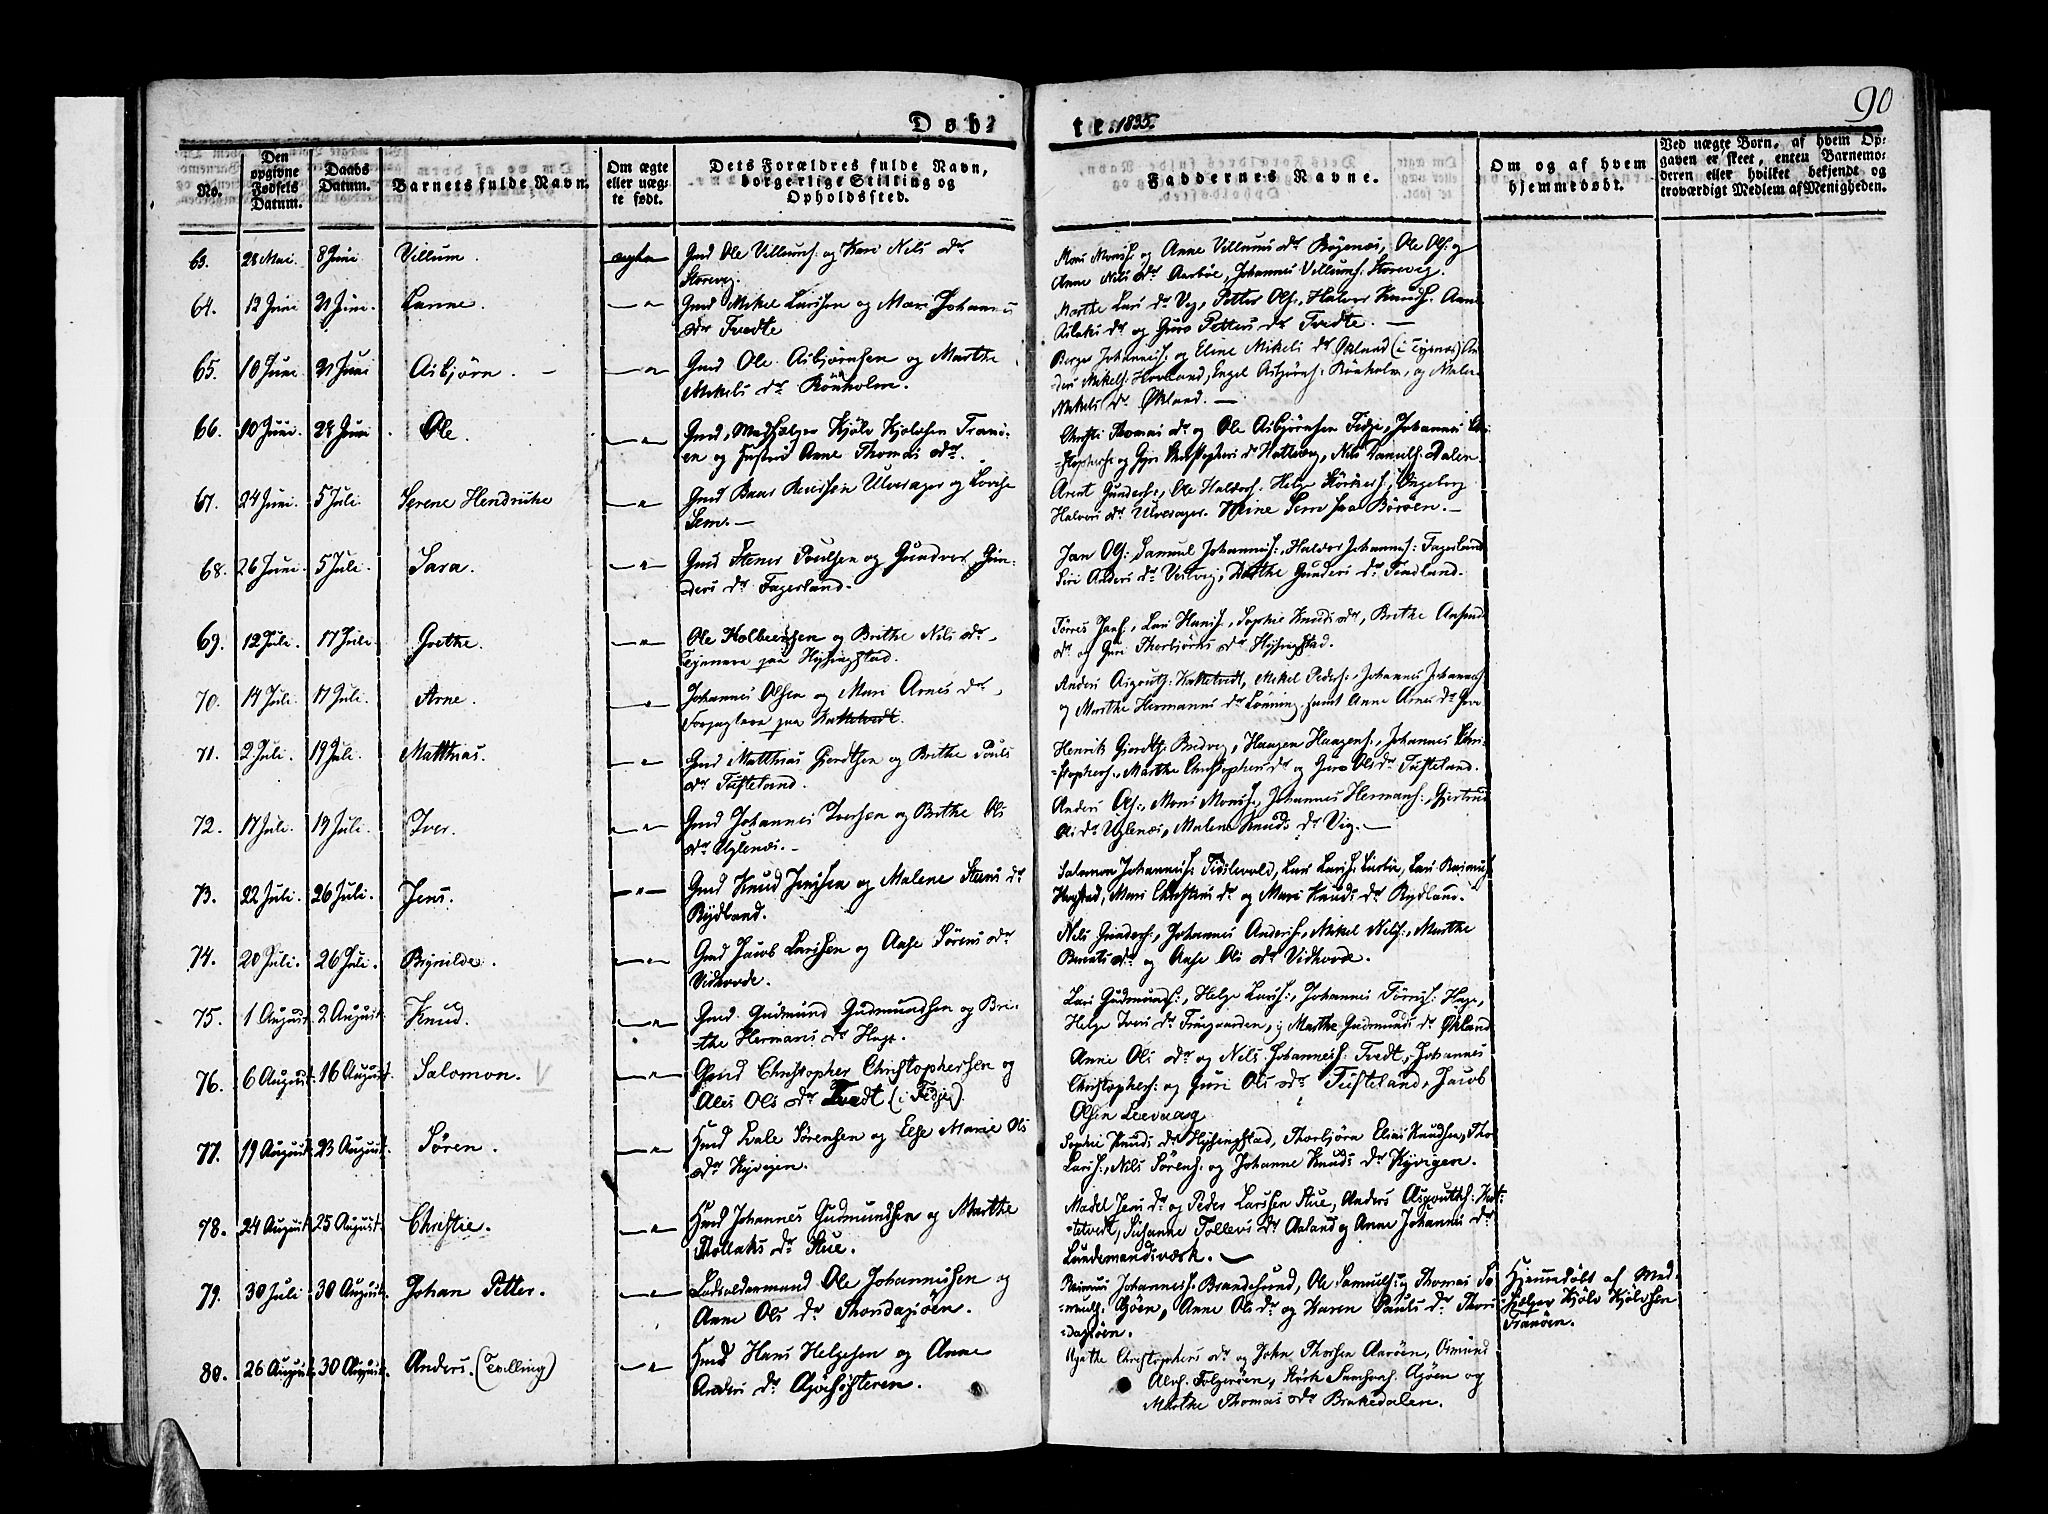 90
Døbte. 1835.
No.
Den opgivne Fødsels Datum.
Daabs Datum.
Barnets fulde Navn.
Om ægte eller uægte født.
Dets Forældres fulde Navn, borgerlige Stilling og Opholdssted.
Faddernes Navne.
Om og af hvem hjemmedøbt.
Ved uægte Børn, af hvem Opgaven er skeet, enten Barnemoderen eller hvilket bekjendt og troværdigt Medlem af Menigheden.
63. 28 Mai. 8 Juni Villum. ægte Gmd Ole Villums: og Kari Nils dr
Storevig.
Mons Monss: og Anne Villums dr Røgenæs, Ole Ols: og
Anne Nils dr Aarbøe, Johannes Villums: Storevig.
64. 12 Juni 21 Juni. Gmd Mikel Larssen og Mari Johannes
dr Tvedte
Marthe Lars dr Vig, Petter Ols:, Halvor Knuds: Anne
Aslaks dr og Guro Petters dr Tvedte.
65. 10 Juni 21 Juni Asbjørn. Gmd Ole Asbjørnsen og Marthe
Mikels dr Rönholm.
Berge Johanness: og Eline Mikels dr Økland (i Tysnes) An-
ders Mikels: Hovland, Engel Asbjørns: Rönholm, og Malene
Mikels dr Økland.
66. 10 Juni. 28 Juni Ole. Gmd, Medhjælper Kjølv Kjølvsen Tranö-
en og Hustru Anne Thomas dr.
Christi Thomas dr og Ole Asbjørnsen Fidje, Johannes Chri-
stophers: og Guri Christophers dr Hattevig, Nils Samuels: Dalen
67. 24 Juni. 5 Juli. Serene Hendrikke Gmd Baar Reiersön Ulversøger og Lovise
Sem.
Arent Gunders:, Ole Haldors: Helge Størkers:, Ingeborg
Halvors dr Ulversøger. Stine Sem paa Böröen.
68. 26 Juni. 5 Juli. Sara. Gmd Stener Poulsen og Gundvor Gun-
ders dr Fagerland.
Jan Ols: Samuel Johanness:, Haldor Johanness: Fagerland
Siri Anders dr Vestvig, Dorthe Gunders dr Fendland.
69. 12 Juli. 17 Juli. Grethe. Ole Kolbeensen og Brithe Nils dr
Tjenere paa Hysingstad.
Tørres Jans:, Lars Hans:, Sophie Knuds dr, Brithe Aasmd
dr og Guri Thorbjörns dr Hysingstad.
70. 14 Juli. 17 Juli. Arne. Johannes Olsen og Mari Arnes dr
paa Hattetvedt.
Anders Asgouts: Hattetvedt, Mikel Peders:, Johannes Johanness:
og Marthe Hermanns dr Lönning, samt Anne Arnes dr
71. 2 Juli. 19 Juli. Matthias. Gmd Matthias Gjerdtsen og Brithe Pouls
dr Tufteland.
Henrik Gjerdts: Bredvig, Haagen Haagens:, Johannes Chri-
stophers:, Marthe Christophers dr og Guro Ols dr Tufteland.
72. 17 Juli. 19 Juli. Iver. Gmd Johannes Iversen og Brithe Ols
dr Uglenæs.
Anders Ols:, Mons Monss:, Johannes Hermans:, Gjertrud
Uglenæs, Malene Knuds dr Vig.
73. 22 Juli. 26 Juli. Jens. Gmd Knud Jenssen og Malene Steens dr
Rydland.
Salomon Johanness: Lars Larss: Lars Rasmus:
Hogstad, Mari Christens dr og Mari Knuds dr Rydland.
74. 20 Juli. 26 Juli. Brynilde. Gmd Jacob Larssen og Aase Sørens dr
Vidhovde.
Nils Gunders:, Johannes Anders:, Mikel Nils:, Marthe
Bernts dr og Aase Ols dr Vidhovde.
75. 1 August. 2 August. Knud. Gmd. Gudmund Gudmundsen og Bri-
the Hermans dr Hage.
Lars Gudmunds:, Helge Larss:, Johannes Tørris: Hage,
Helge Ivers dr Trægaarden, og Marthe Gudmunds dr Økland
76. 6 August. 16 August. Salomon. V Gmd Christopher Christophersen og
Ales Ols dr Tvedt (i Fidje).
Anne Ols dr og Nils Johanness: Tvedt, Johannes
Christophers: og Guri Ols dr Tufteland, Jacob
Olsen Leevaag
77. 19 August. 23 August. Søren. Hmd Lale Sørensen og Else Marie Ols
dr Kyvigen.
Sophie Knuds dr Hysingstad, Thorbjörn Knudsen,
Larss:, Nils Sørens: og Johanne Knuds dr Kyvigen.
78. 24 August. 25 August. Christie. Hmd Johannes Gudmundsen og Marthe
Thollaks dr Stue.
Madel Jens dr og Peder Larssen Stue, Anders Asgouts: Hat-
tetvedt, Susanne Tollevs dr Aaland og Anne Johannes dr
Lundemandsværk.
79. 30 Juli 30 August. Johan Petter. Lodsoldermand Ole Johannessen og
Anne Ols dr Thorsdagsöen.
Rasmus Johanness: Brandesund, Ole Samuels: og Thomas Sa-
muels: Gjöen, Anne Ols dr og Karen Pauls dr Thors-
dagsöen.
Hjemmedøbt af Med-
hjælper Kjölv Kjölvsen
Tranöen.
80. 26 August. 30 August. Anders. (Tvilling) Hmd Hans Helgesen og Anne
Anders dr
Agathe Christophers dr og John Thorsen Aaröen, Osmund
Folgeröen, Størk Samsons: og
Marthe Thomas dr Brakedalen.